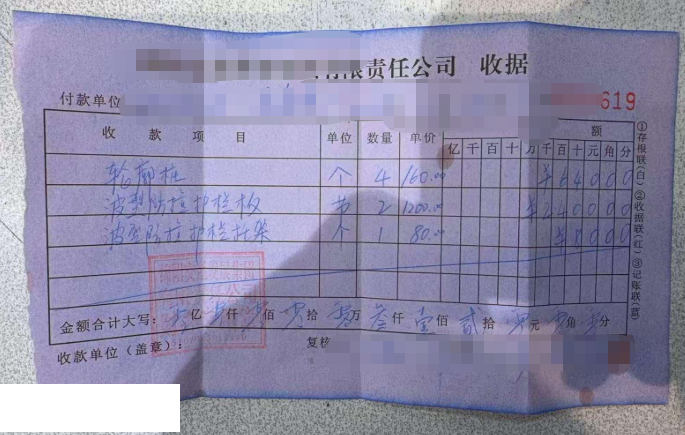 有限责任公司 收据
付款单位 619
收款项目 单位 数量 单价 额
亿千百十万千百十元角分
轮廓桩 个 4 160.00 ¥64000
波型防护栏板 节 2 1200.00 ¥240000
波型防护栏托架 个 1 80.00 ¥8000
金额合计大写：零亿零仟零佰零拾零万叁仟壹佰贰拾零元零角零分
收款单位（盖章）： 复核
①存根联（白）②收据联（红）③记账联（蓝）